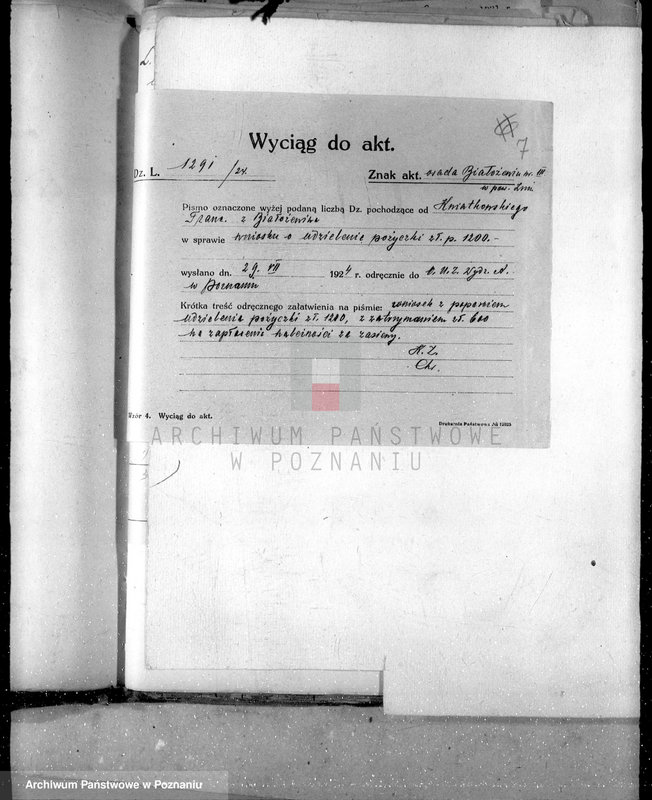 7
Wyciąg do akt.
Dz. L. 1291/24.
Znak akt. osada Białożewin nr. III
w pow. Żnin
Pismo oznaczone wyżej podaną liczbą Dz. pochodzące od Kwiatkowskiego
Franc. z Białożewina
w sprawie wniosku o udzielenie pożyczki zł. p. 1200.-
wysłano dn. 29. VII 1924 r. odręcznie do O. U. Z. Wydz. A.
w Poznaniu
Krótka treść odręcznego załatwienia na piśmie: wniosek z poparciem
udzielenia pożyczki zł. 1200, z zatrzymaniem zł. 600
na zapłacenie należności za zasiewy.
K. Z.
Ch.
Wzór 4. Wyciąg do akt.
Drukarnia Państwowa
ARCHIWUM PAŃSTWOWE
W POZNANIU
Archiwum Państwowe w Poznaniu